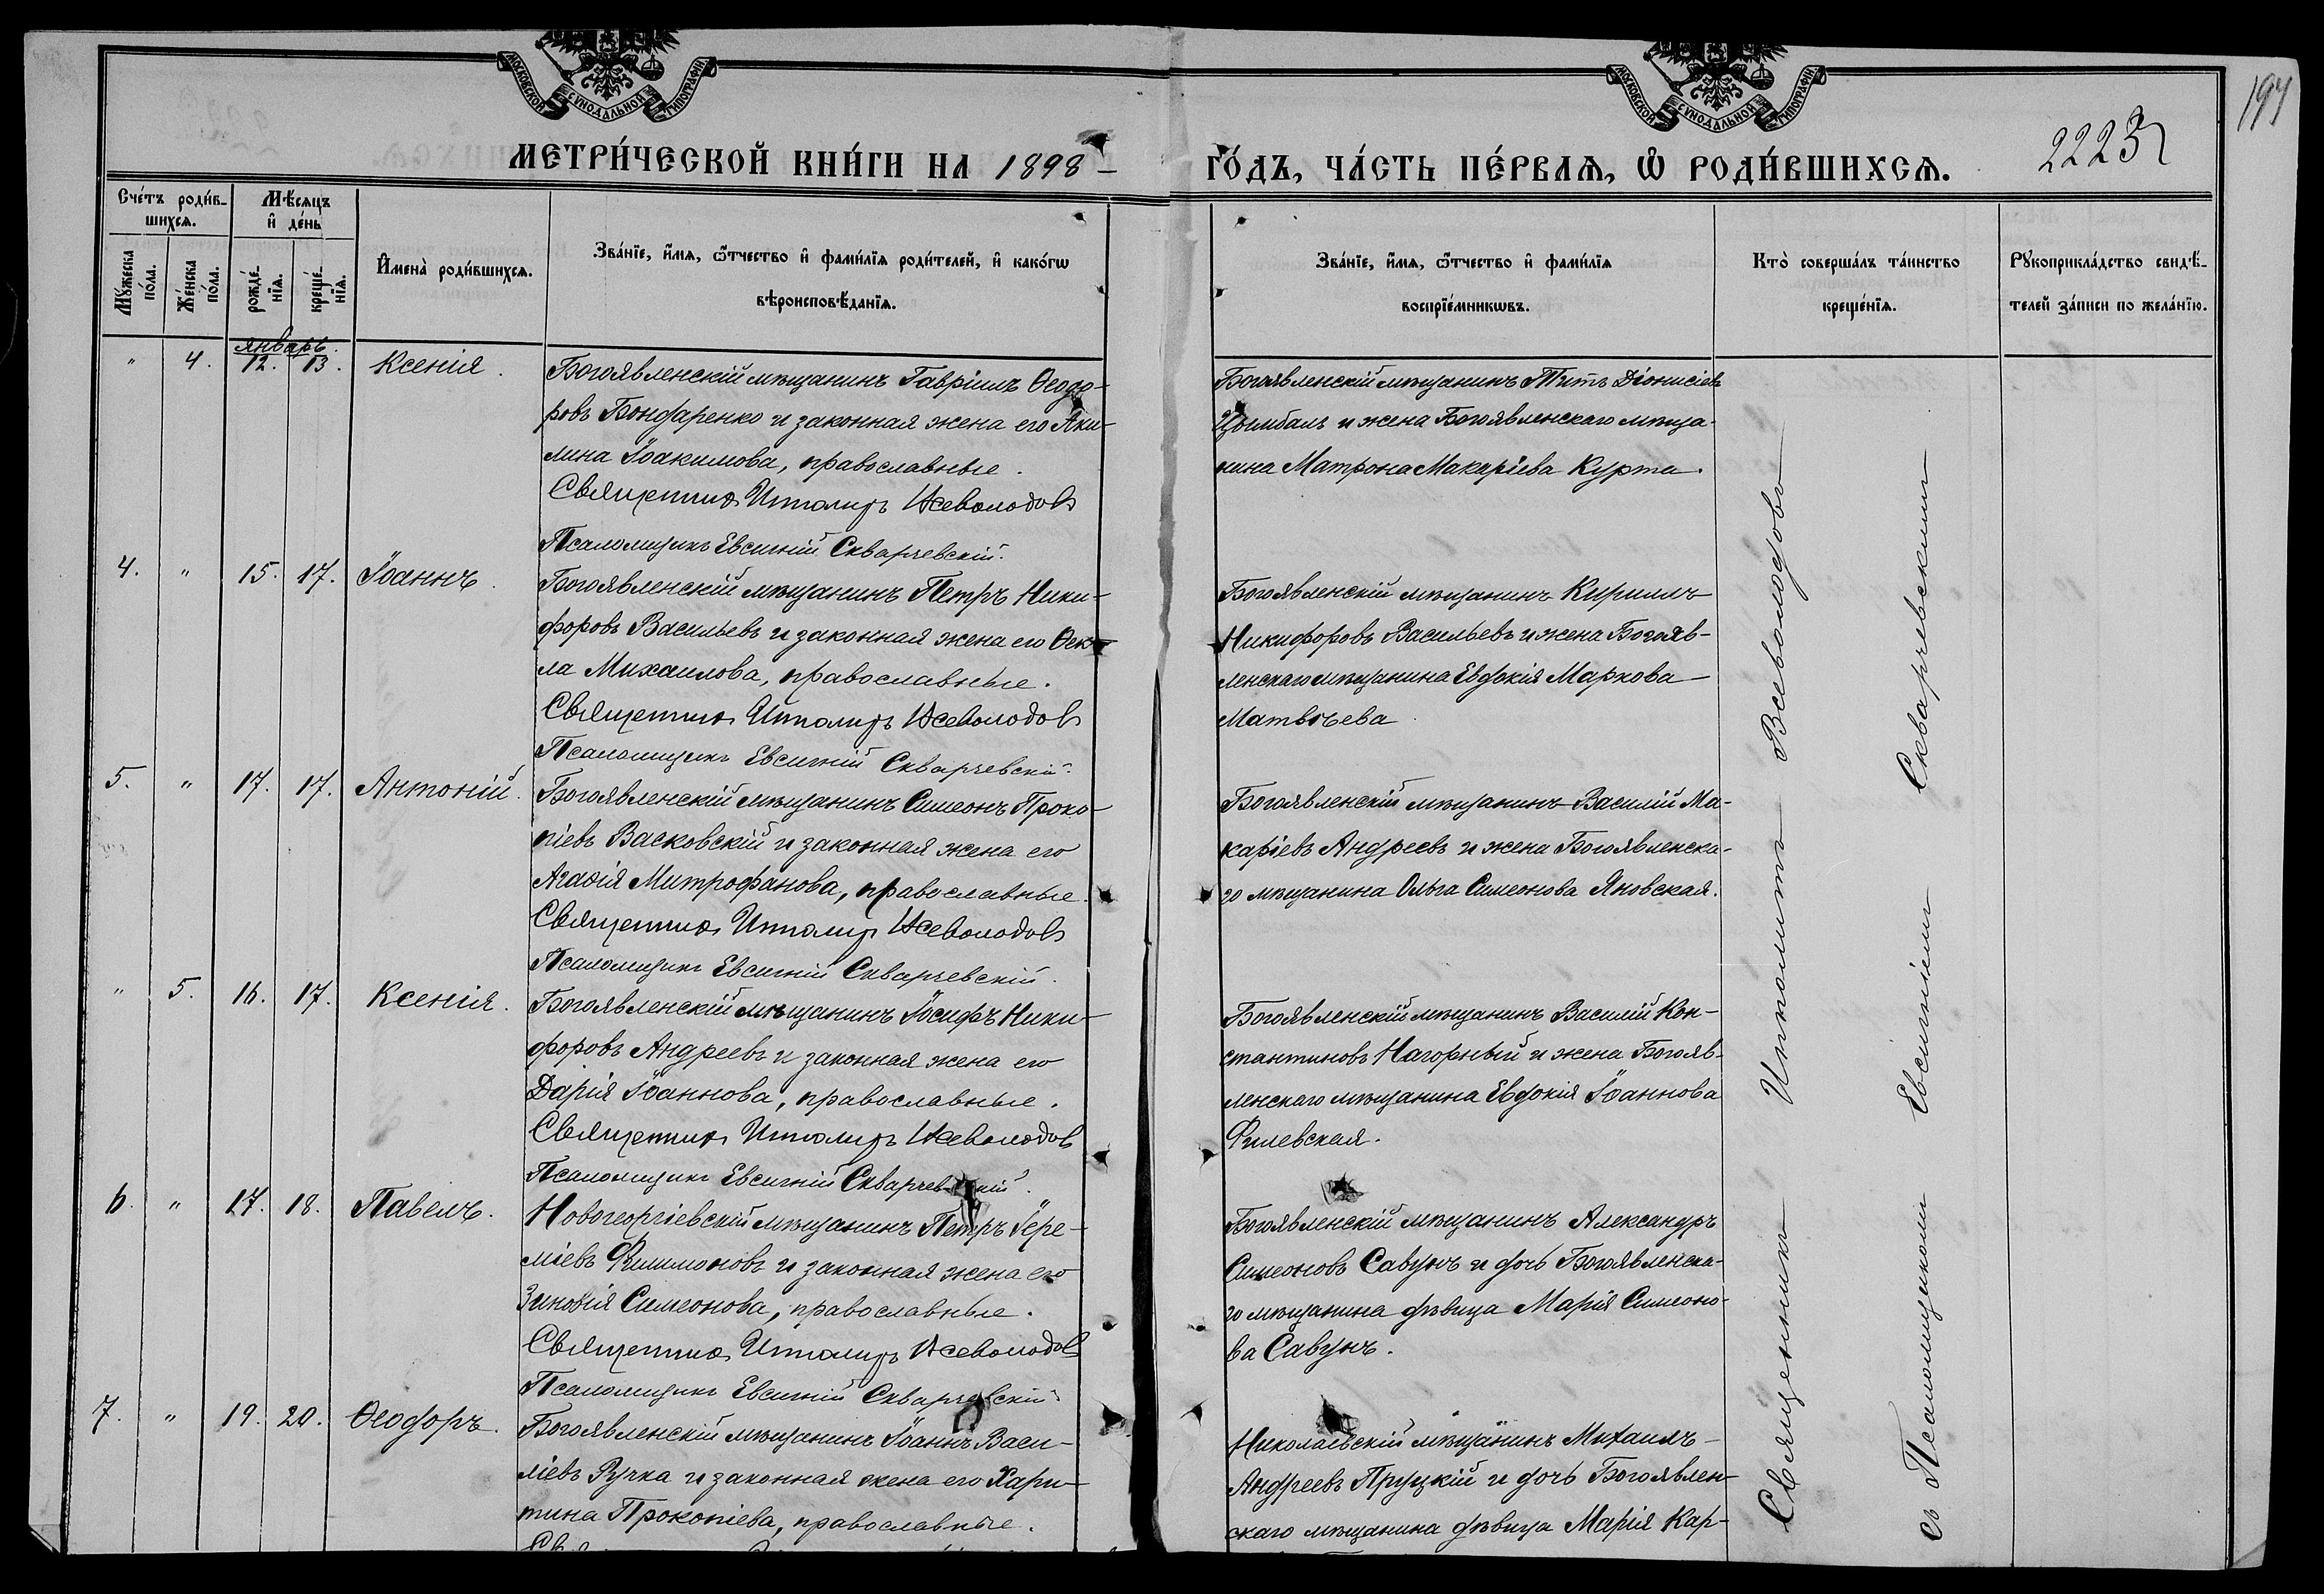 МОСКОВСКОЙ СУНОДАЛЬНОЙ ТИПОГРАФІИ
МОСКОВСКОЙ СУНОДАЛЬНОЙ ТИПОГРАФІИ
194
2223
МЕТРИ́ЧЕСКОЙ КНИ́ГИ НА 1898 –
ГО́ДЪ, ЧА́СТЬ ПЕ́РВАѦ, Ѡ҆ РОДИ́ВШИХСѦ.
Сче́тъ роди́в-
шихсѧ.
Мꙋ́жеска
по́ла.
Же́нска
по́ла.
Мѣ́сѧцъ
и҆ де́нь
рожде́-
нїѧ.
креще́-
нїѧ.
И҆мена̀ роди́вшихсѧ.
Зва́нїе, и҆́мѧ, ѻ҆́тчество и҆ фами́лїѧ роди́телей, и҆ како́гѡ
вѣроисповѣ́данїѧ.
Зва́нїе, и҆́мѧ, ѻ҆́тчество и҆ фами́лїѧ
воспрїе́мникѡвъ.
Кто̀ соверша́лъ та́инство
креще́нїѧ.
Рꙋкоприкла́дство свидѣ́-
телей за́писи по жела́нїю.
январь.
" 4. 12. 13. Ксенія.
Богоявленскій мѣщанинъ Гавріилъ Ѳеодо-
ровъ Бондаренко и законная жена его Аки-
лина Іоакимова, православные.
Священникъ Ипполитъ Всеволодовъ
Псаломщикъ Евсигній Скварчевскій.
Богоявленскій мѣщанинъ Титъ Діонисіевъ
Цымбалъ и жена Богоявленскаго мѣща-
нина Матрона Макаріева Курта.
4. " 15. 17. Іоаннъ.
Богоявленскій мѣщанинъ Петръ Ники-
форовъ Васильевъ и законная жена его Ѳек-
ла Михаилова, православные.
Священникъ Ипполитъ Всеволодовъ
Псаломщикъ Евсигній Скварчевскій.
Богоявленскій мѣщанинъ Кириллъ
Никифоровъ Васильевъ и жена Богояв-
ленскаго мѣщанина Евдокія Маркова
Матвѣева.
5. " 17. 17. Антоній.
Богоявленскій мѣщанинъ Симеонъ Проко-
піевъ Васковскій и законная жена его
Агафія Митрофанова, православные.
Священникъ Ипполитъ Всеволодовъ
Псаломщикъ Евсигній Скварчевскій.
Богоявленскій мѣщанинъ Василій Ма-
каріевъ Андреевъ и жена Богоявленска-
го мѣщанина Ольга Симеонова Яновская.
" 5. 16. 17. Ксенія.
Богоявленскій мѣщанинъ Іосифъ Ники-
форовъ Андреевъ и законная жена его
Дарія Іоаннова, православные.
Священникъ Ипполитъ Всеволодовъ
Псаломщикъ Евсигній Скварчевскій.
Богоявленскій мѣщанинъ Василій Кон-
стантиновъ Нагорный и жена Богояв-
ленскаго мѣщанина Евдокія Іоаннова
Филевская.
6. " 17. 18. Павелъ.
Новогеоргіевскій мѣщанинъ Петръ Іере-
міевъ Филимоновъ и законная жена его
Зиновія Симеонова, православные.
Священникъ Ипполитъ Всеволодовъ
Псаломщикъ Евсигній Скварчевскій.
Богоявленскій мѣщанинъ Александръ
Симеоновъ Савунъ и дочь Богоявленска-
го мѣщанина дѣвица Марія Симеоно-
ва Савунъ.
7. " 19. 20. Ѳеодоръ.
Богоявленскій мѣщанинъ Іоаннъ Васи-
ліевъ Ручка и законная жена его Хари-
тина Прокопіева, православные.
Николаевскій мѣщанинъ Михаилъ
Андреевъ Пруцкій и дочь Богоявлен-
скаго мѣщанина дѣвица Марія Кар-
Священникъ Ипполитъ Всеволодовъ
съ Псаломщикомъ Евсигніемъ Скварчевскимъ